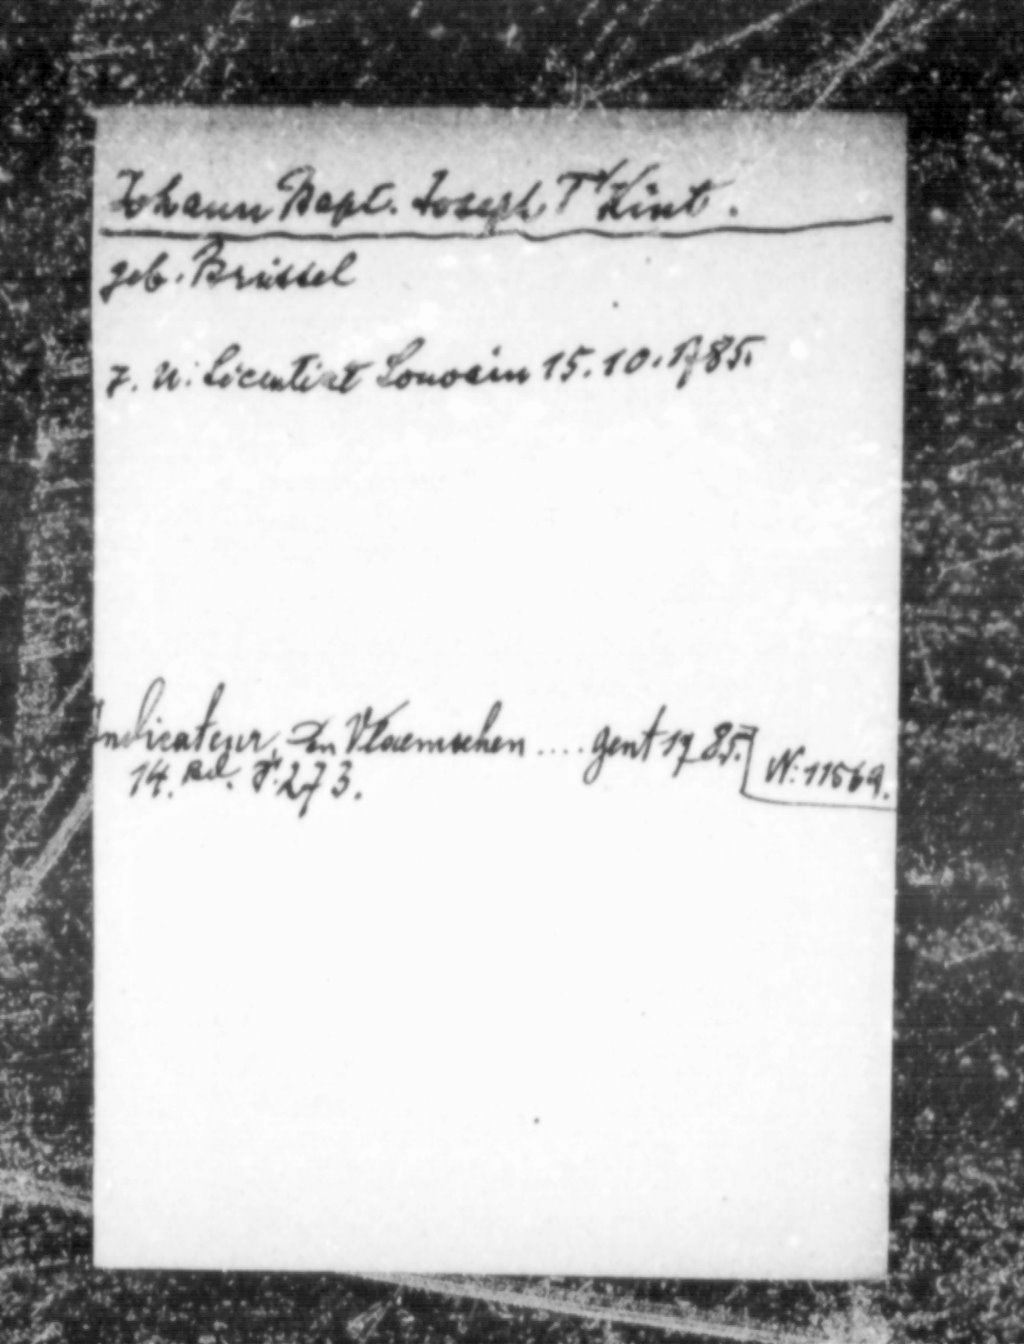 Johann Bapt. Joseph T'Kint.
geb. Brüssel
J. U. Licentiat Louvain 15.10.1785.
Indicateur, Den Vlaemschen .... gent 1785.
14. Bd. P. 273.
N: 11569.